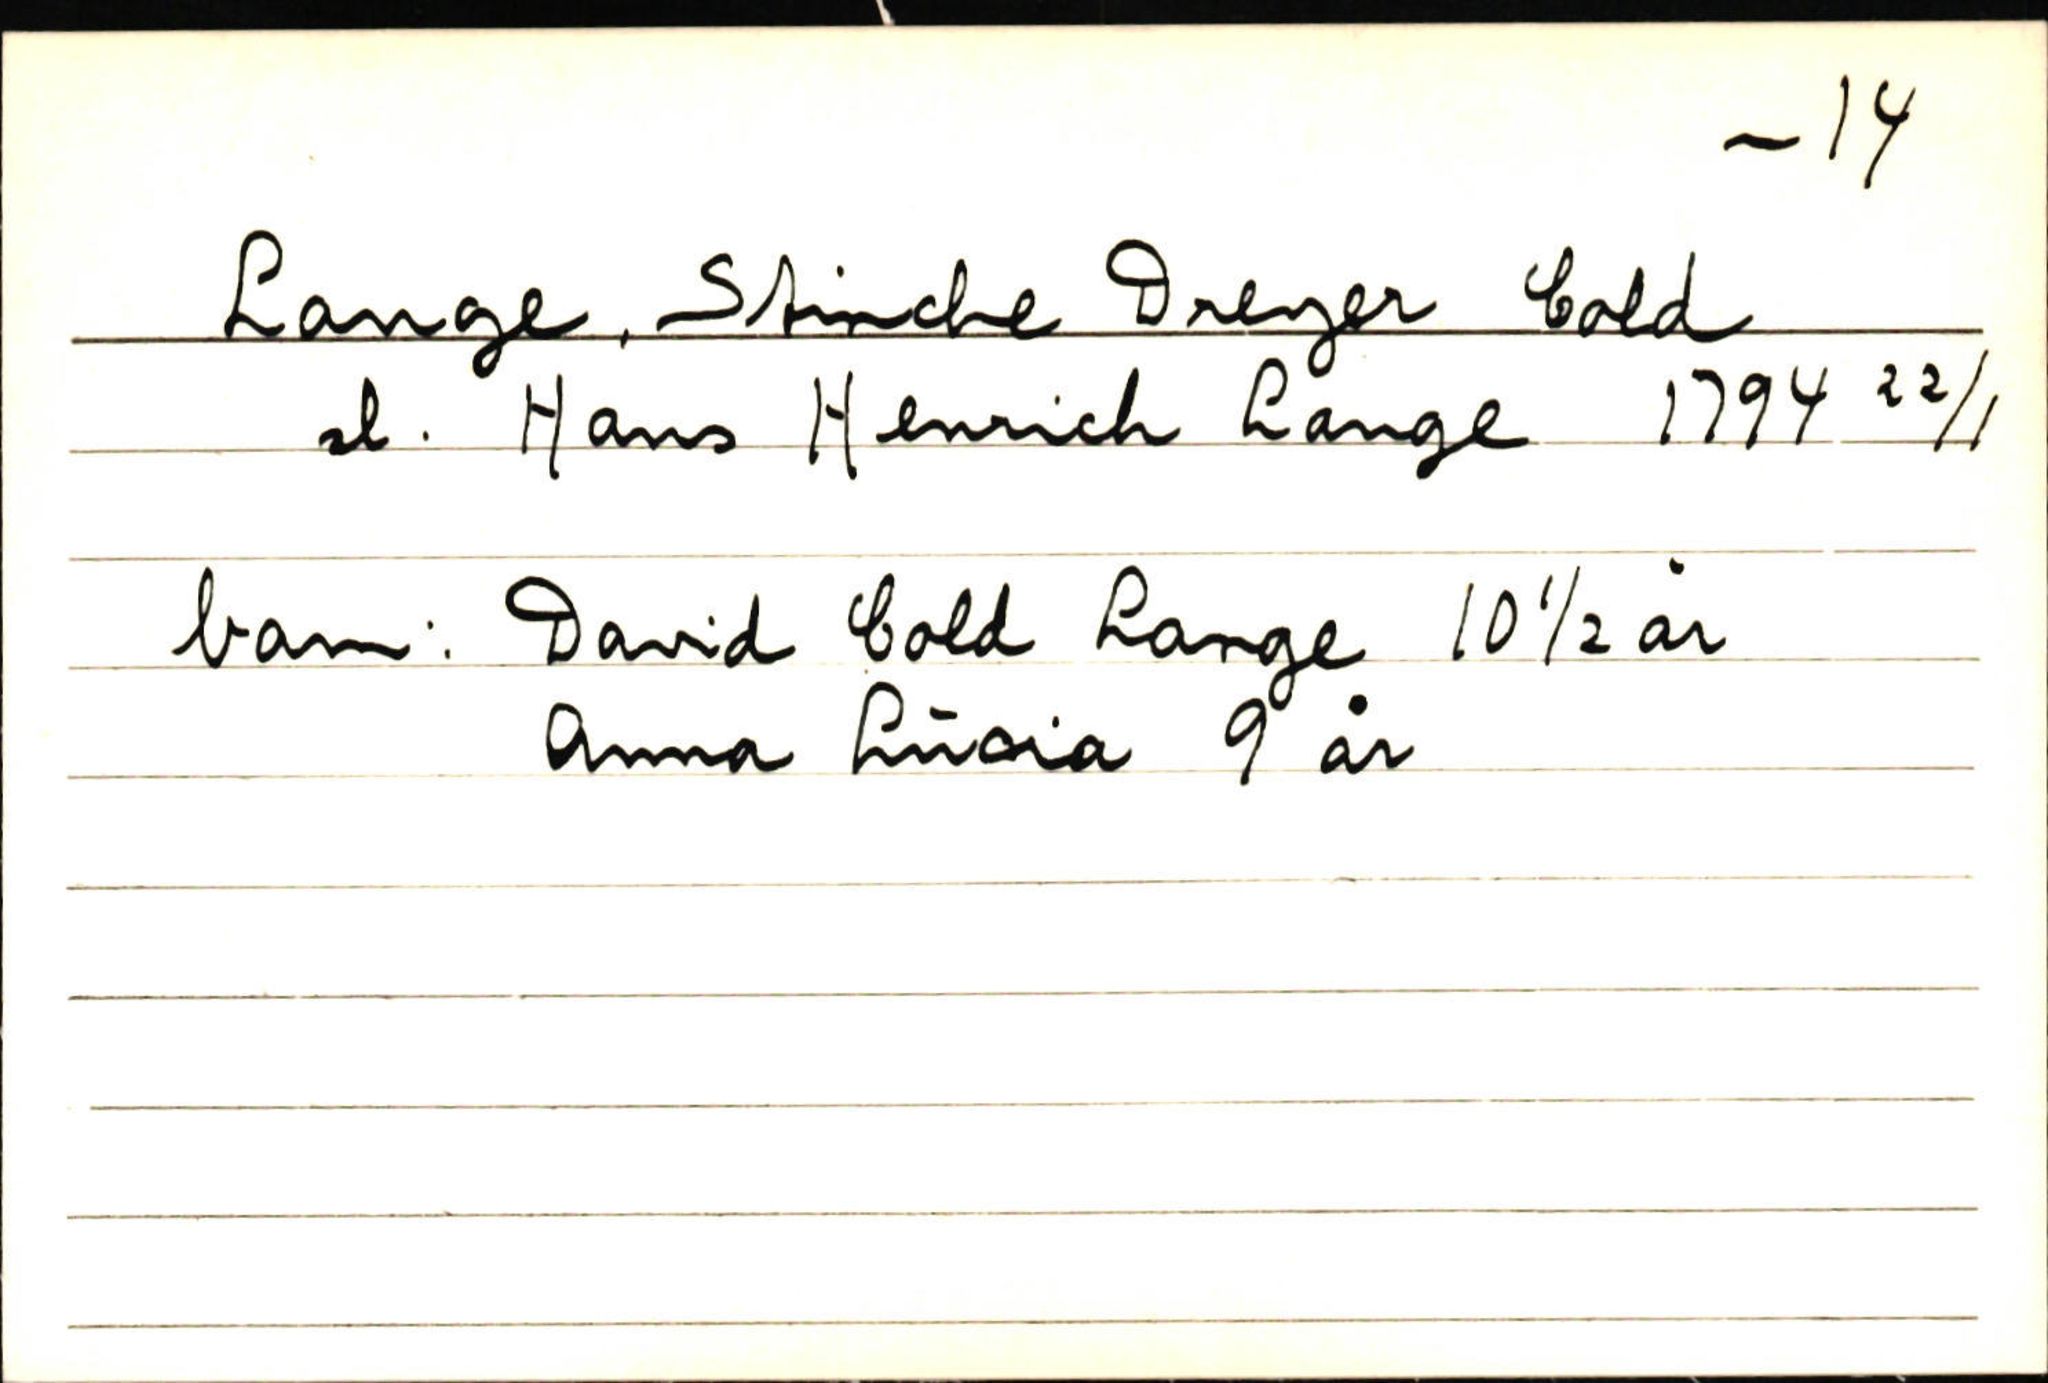 ~ 14
Lange, Stinche Dreyer Cold
sl. Hans Henrich Lange 1794 22/1
barn: David Cold Lange 10 1/2 år
Anna Lūcia 9 år